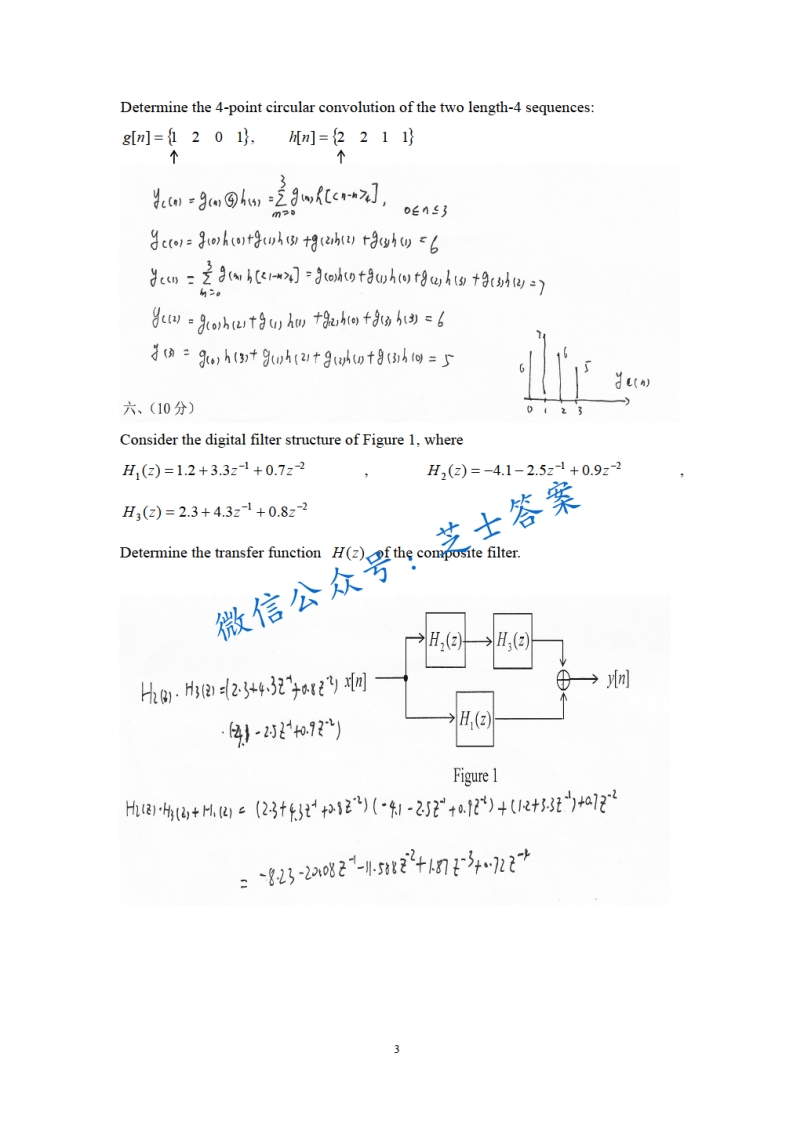 Determine the 4-point circular convolution of the two length-4 sequences:
g[n] = {1 2 0 1}, h[n] = {2 2 1 1}
↑ ↑
y_c(n) = g(n) ④ h(n) = Σ_{m=0}^{3} g(m) h[<n-m>_4], 0≤n≤3
y_c(0) = g(0)h(0)+g(1)h(3)+g(2)h(2)+g(3)h(1) = 6
y_c(1) = Σ_{m=0}^{3} g(m) h[<1-m>_4] = g(0)h(1)+g(1)h(0)+g(2)h(3)+g(3)h(2) = 7
y_c(2) = g(0)h(2)+g(1)h(1)+g(2)h(0)+g(3)h(3) = 6
y(3) = g(0)h(3)+g(1)h(2)+g(2)h(1)+g(3)h(0) = 5
6 7 6 5 y_c(n)
0 1 2 3
六、(10 分)
Consider the digital filter structure of Figure 1, where
H₁(z) = 1.2 + 3.3z⁻¹ + 0.7z⁻² , H₂(z) = −4.1 − 2.5z⁻¹ + 0.9z⁻² ,
H₃(z) = 2.3 + 4.3z⁻¹ + 0.8z⁻²
Determine the transfer function H(z) of the composite filter.
微信公众号：芝士答案
H₂(z) H₃(z)
H₂(z)·H₃(z) = (2.3+4.3z⁻¹+0.8z⁻²) x[n] y[n]
·(-4.1-2.5z⁻¹+0.9z⁻²)
H₁(z)
Figure 1
H₂(z)·H₃(z)+H₁(z) = (2.3+4.3z⁻¹+0.8z⁻²)(-4.1-2.5z⁻¹+0.9z⁻²)+(1.2+3.3z⁻¹)+0.7z⁻²
= -8.23-20.08z⁻¹-11.588z⁻²+1.87z⁻³+0.72z⁻⁴
3